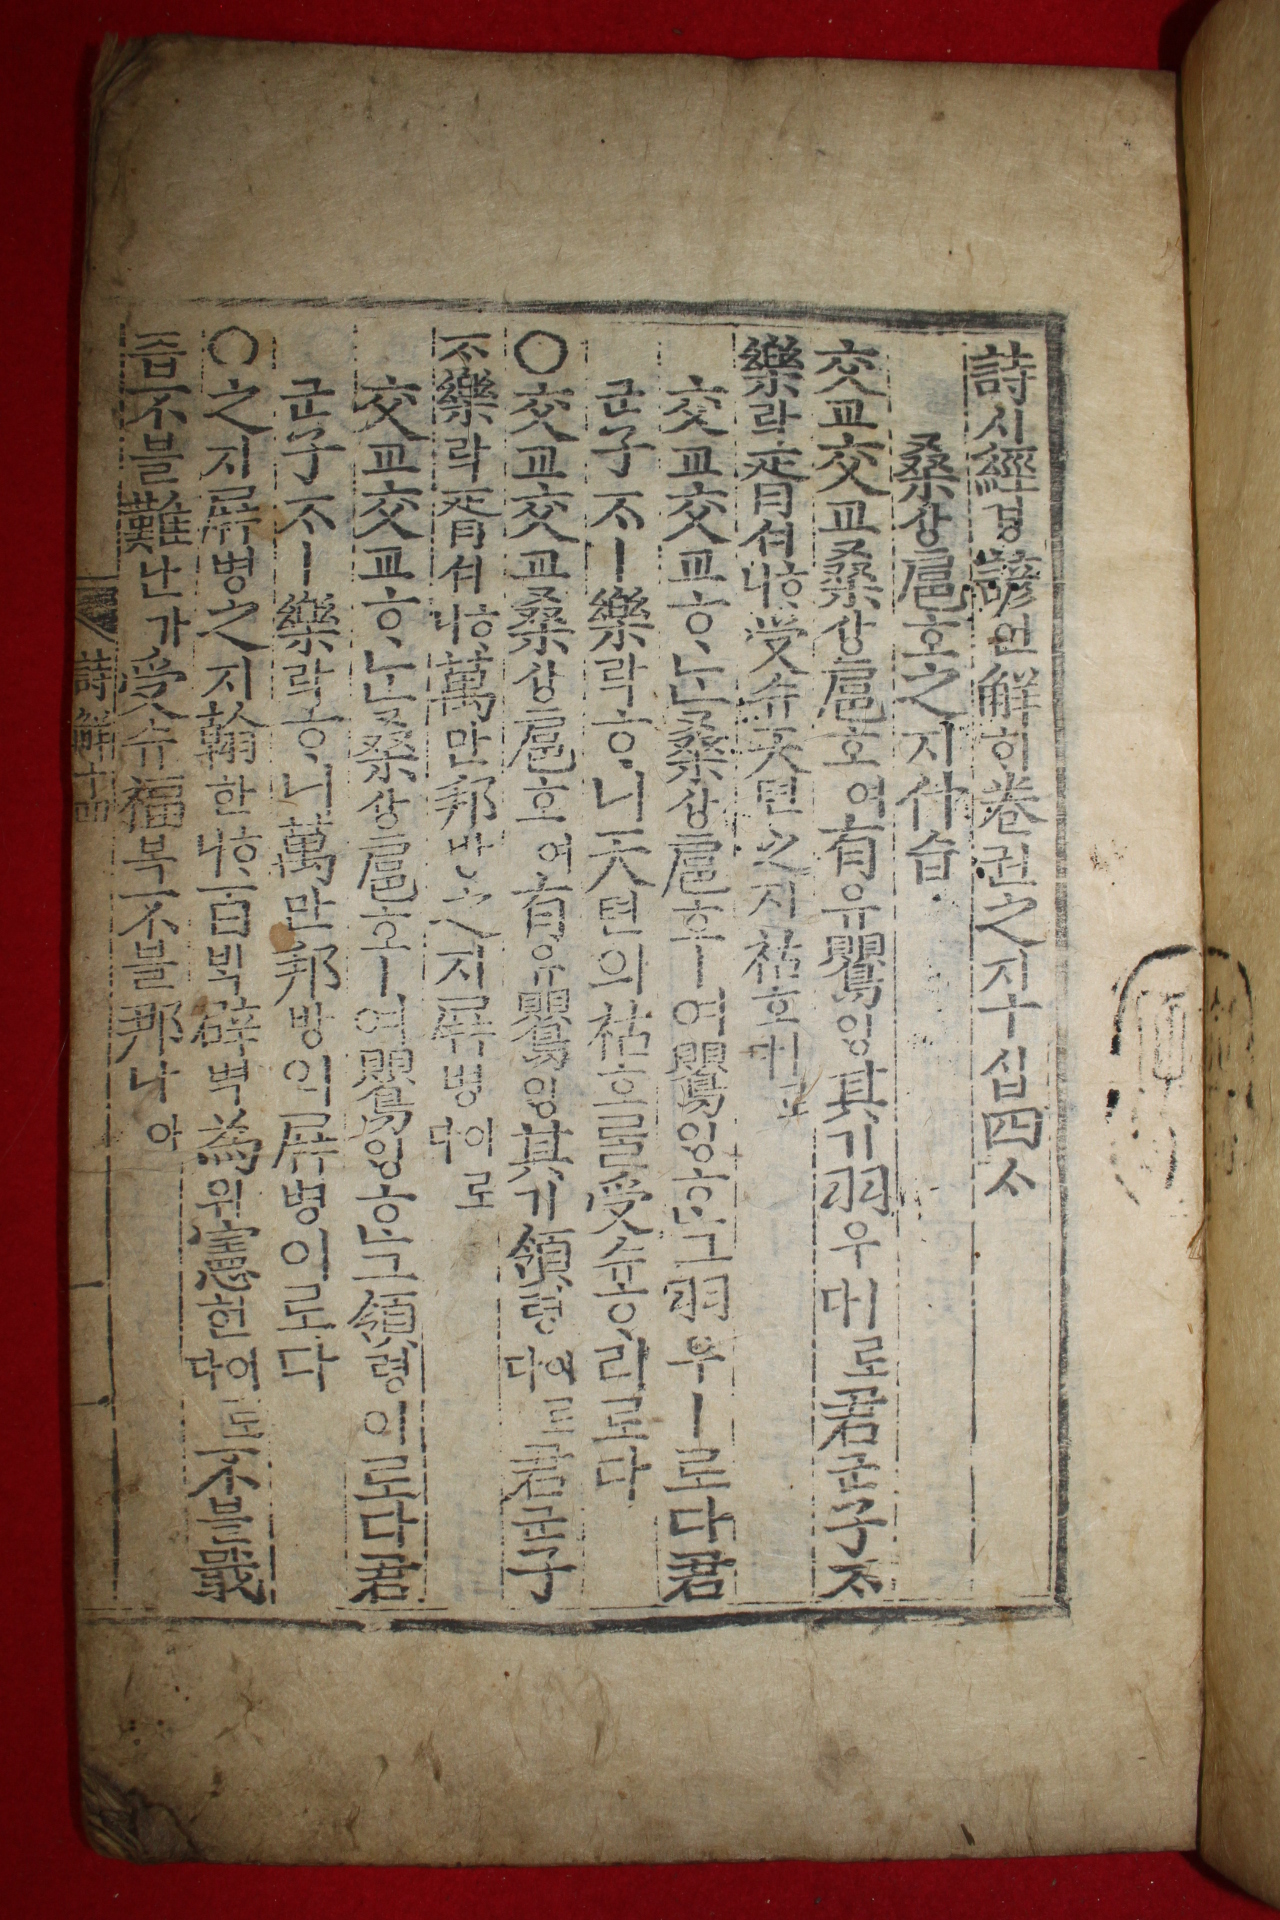 詩시經경諺언解ᄒᆡ卷권之지十십四ᄉᆞ
桑상扈호之지什습
交교交교桑상扈호여有유鸎ᅌᅵᆼ其기羽우ㅣ로다君군子ᄌᆞ
樂락胥셔ᄒᆞ니受슈天텬之지祜호ㅣ로다
交교交교ᄒᆞᄂᆞᆫ桑상扈호ㅣ여鸎ᅌᅵᆼᄒᆞᆫ그羽우ㅣ로다君
군子ᄌᆞㅣ樂락ᄒᆞ니天텬의祜호ᄅᆞᆯ受슈ᄒᆞ리로다
○交교交교桑상扈호여有유鸎ᅌᅵᆼ其기領령이로다君군子
ᄌᆞ樂락胥셔ᄒᆞ니萬만邦방之지屛병이로다
交교交교ᄒᆞᄂᆞᆫ桑상扈호ㅣ여鸎ᅌᅵᆼᄒᆞᆫ그領령이로다君
군子ᄌᆞㅣ樂락ᄒᆞ니萬만邦방의屛병이로다
○之지屛병之지翰한ᄒᆞ니百ᄇᆡᆨ辟벽為위憲헌이로다不블戢
즙不블難난가受슈福복不블那나아
詩解十四